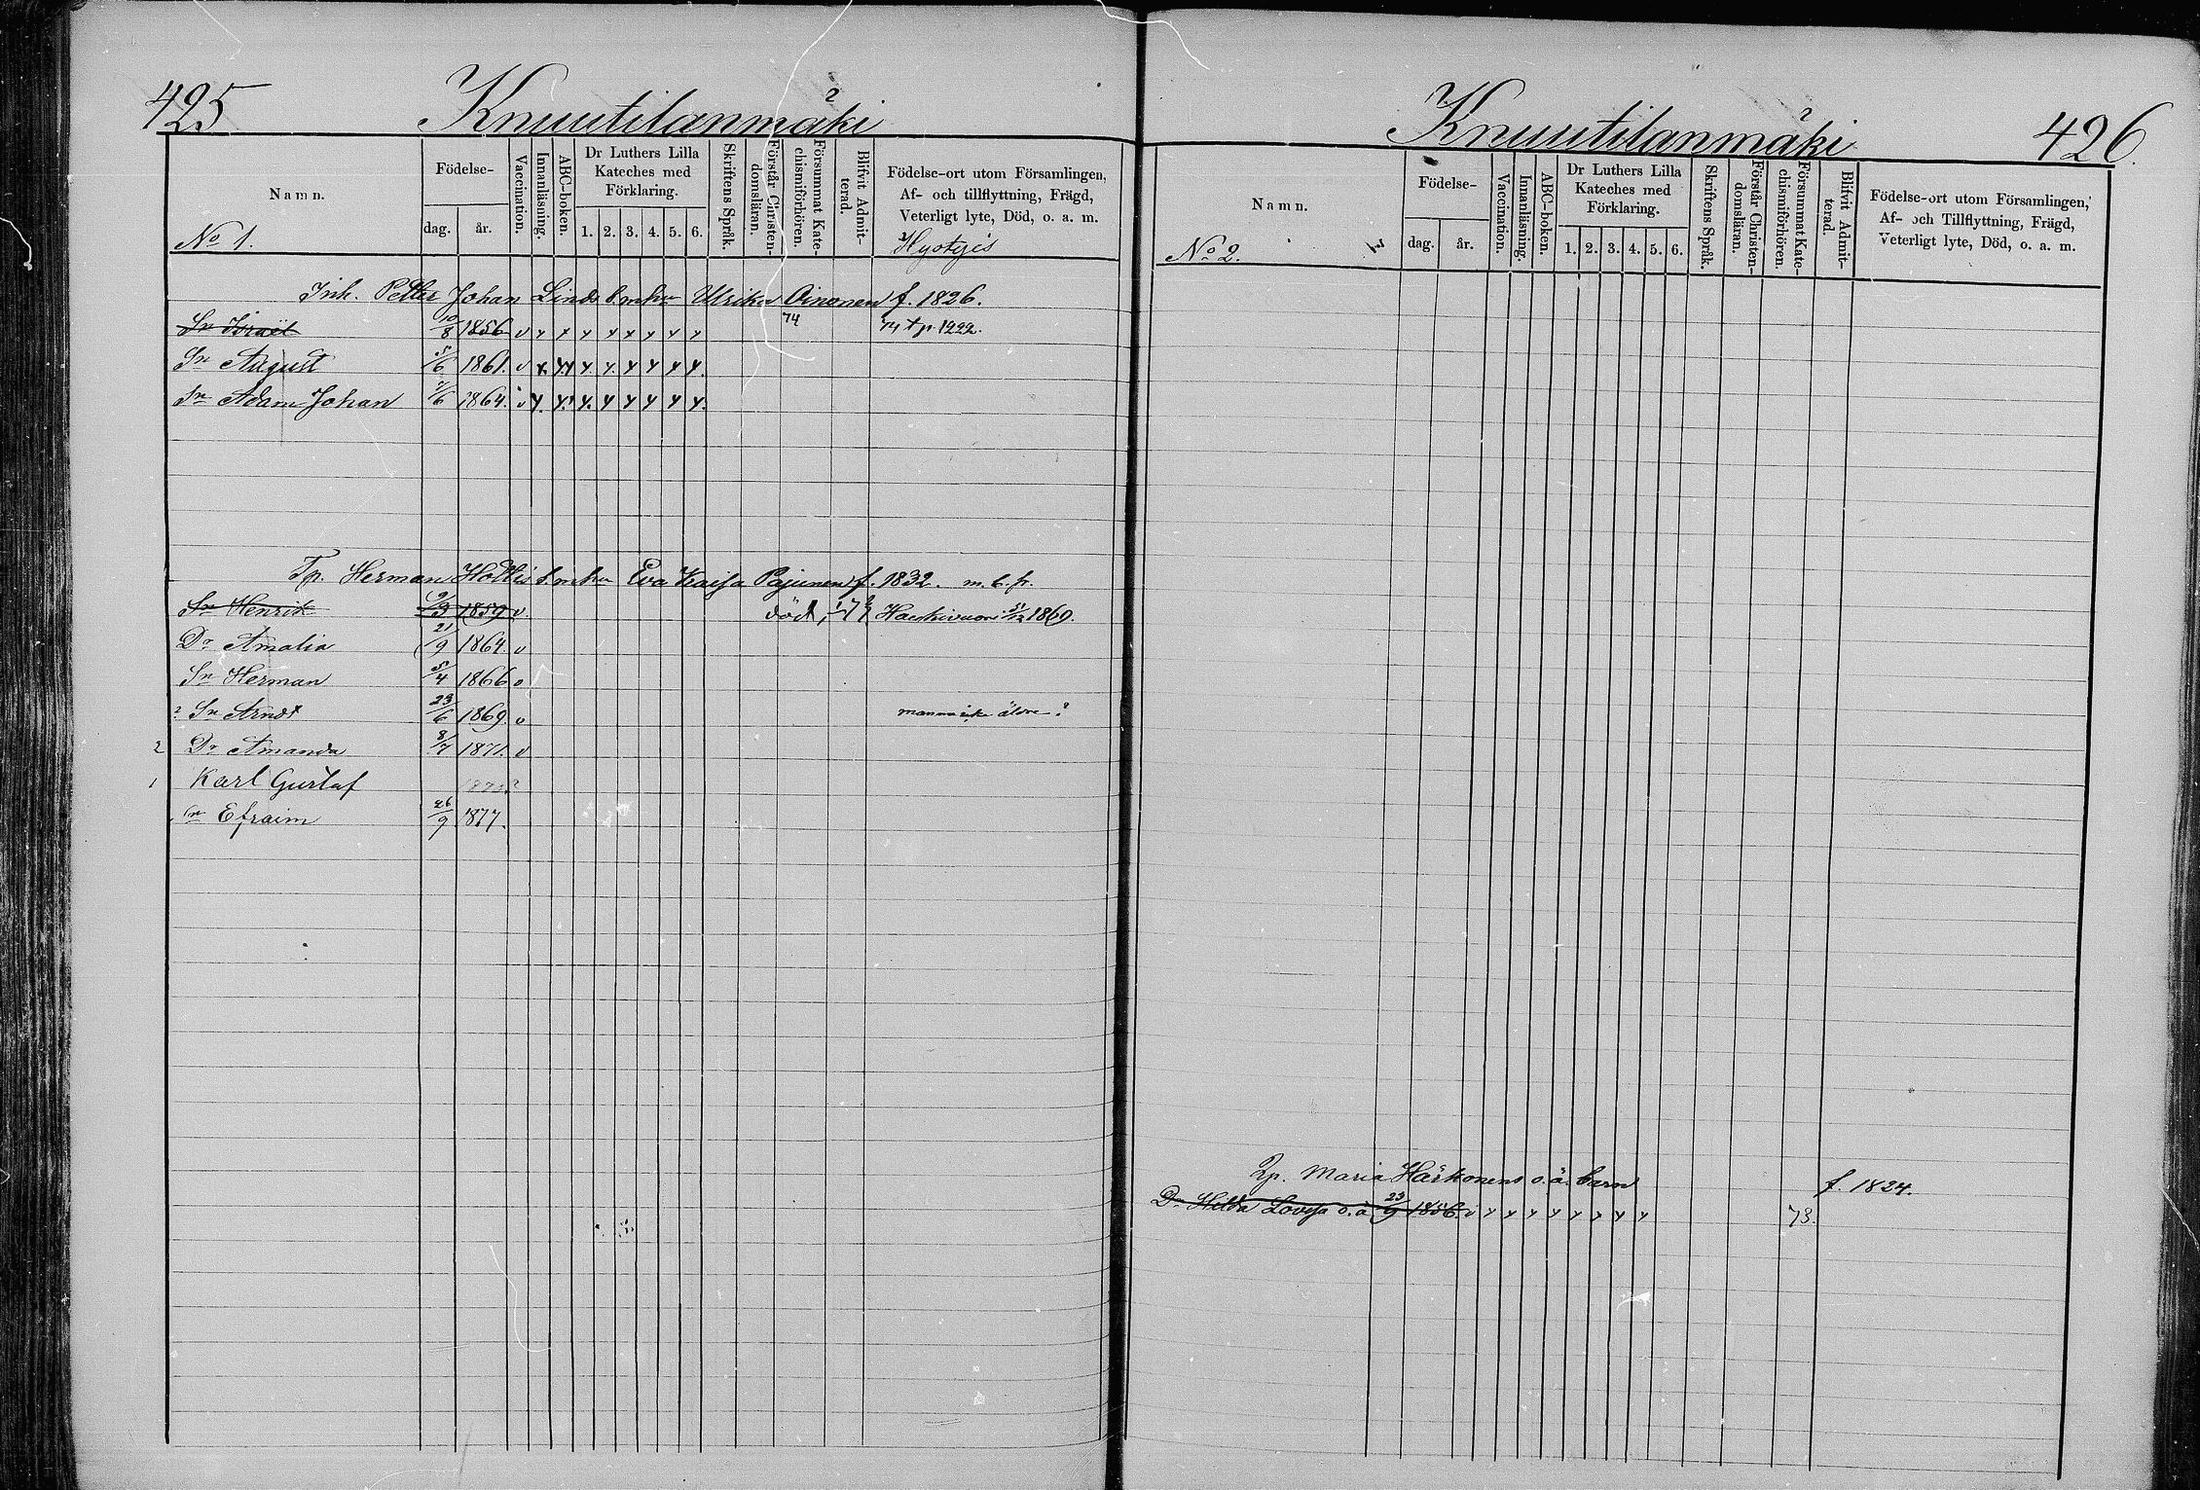 425
Knuutilanmäki
Namn.
No 1.
Födelse-
dag.
år.
Vaccination.
Innanläsning.
ABC-boken.
Dr Luthers Lilla
Kateches med
Förklaring.
1. 2. 3. 4. 5. 6.
Skriftens Språk.
Förstår Christen-
domsläran.
Försummat Kate-
chismiförhören.
Blifvit Admit-
terad.
Födelse-ort utom Församlingen,
Af- och tillflyttning, Frägd,
Veterligt lyte, Död, o. a. m.
Inh. Petter Johan Linds b. m. hu Ulrika Oinonen f. 1826.
Sn Israël 10/8 1856 v y x x y y y y y y 74 74 p. 1222.
Sn August 5/6 1861. v
Sn Adam Johan 1864. v
Tp. Herman m. hu Eva Kaisa Pajunen f. 1832. m. b. fr.
Sn Henrik 1859 v. död, 1869.
Dr Amalia 21/9 1864. v
Sn Herman 5/4 1866 v
? Sn Arndt 23/6 1869. v äldre?
2 Dr Amanda 8/7 1871. v
1 Karl Gustaf
Sn Efraim 26/9 1877.
Knuutilanmäki
426.
Namn.
No 2.
Födelse-
dag.
år.
Vaccination.
Innanläsning.
ABC-boken.
Dr Luthers Lilla
Kateches med
Förklaring.
1. 2. 3. 4. 5. 6.
Skriftens Språk.
Förstår Christen-
domsläran.
Försummat Kate-
chismiförhören.
Blifvit Admit-
terad.
Födelse-ort utom Församlingen,
Af- och Tillflyttning, Frägd,
Veterligt lyte, Död, o. a. m.
Maria Härkonens o. ä. barn f. 1834.
Dr Hilda Lovisa o. ä 23/9 1856. v y y y y y y y y 73.